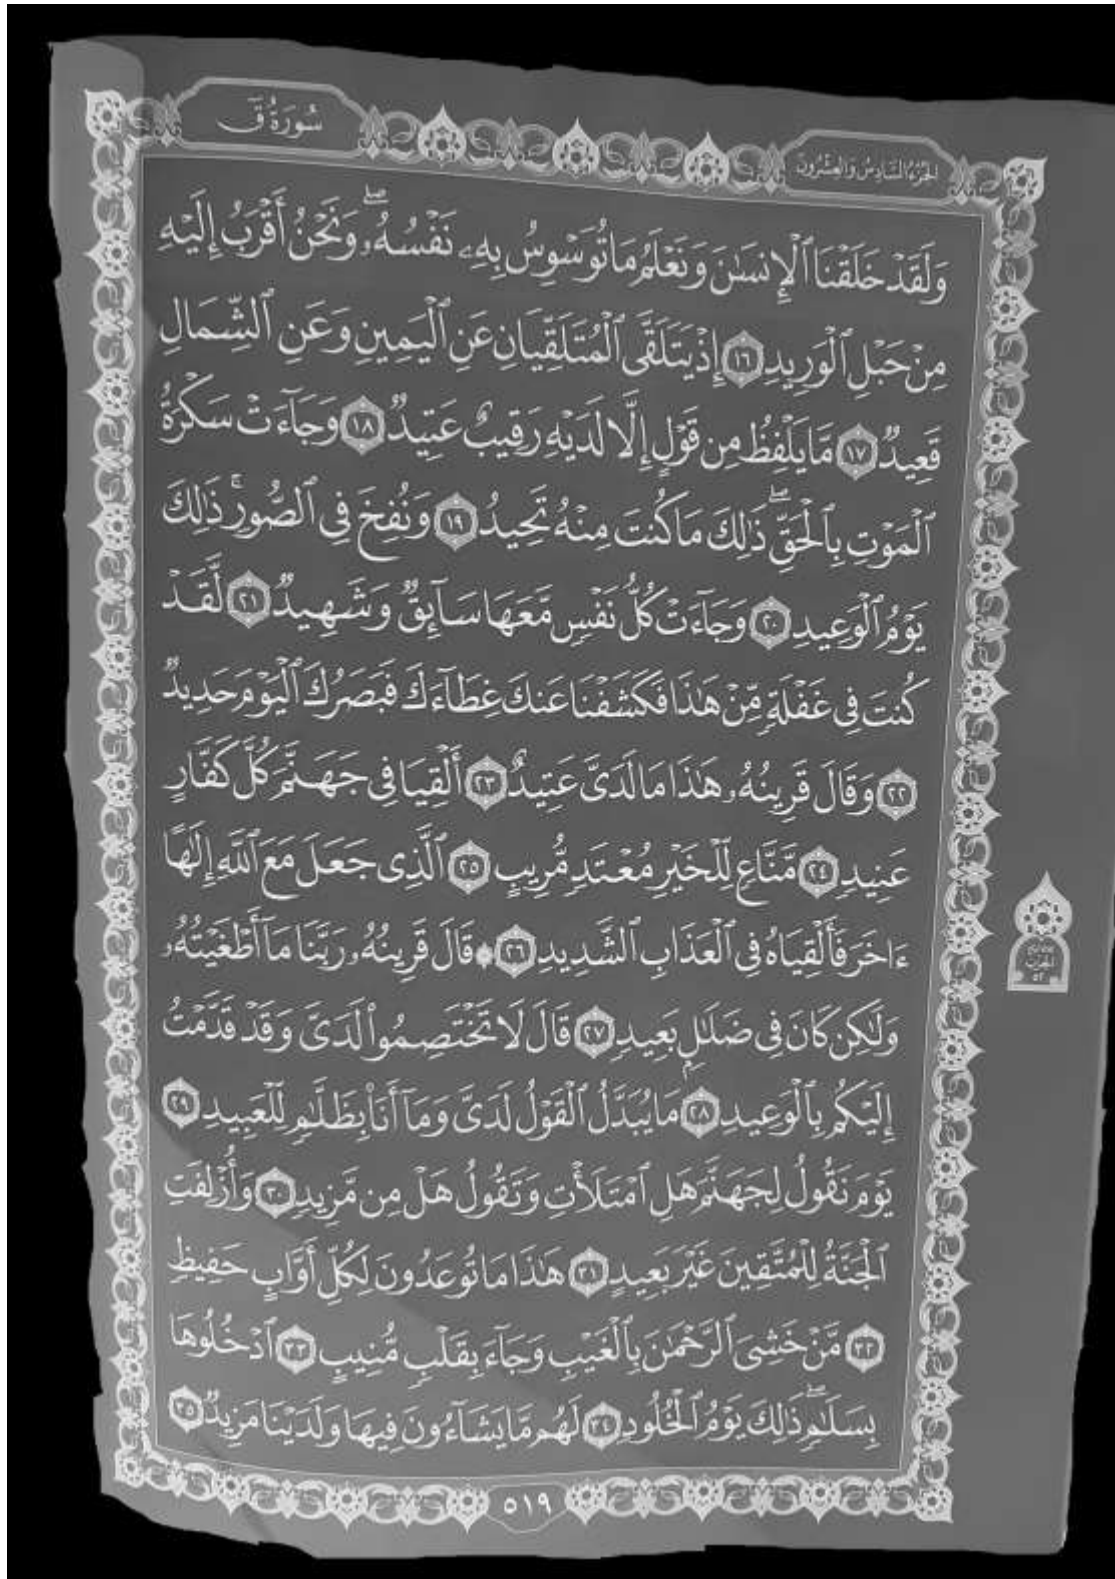 سُورَةُ قٓ
الجُزْءُ السَّادِسُ وَالعِشْرُونَ
وَلَقَدْ خَلَقْنَا ٱلْإِنسَٰنَ وَنَعْلَمُ مَا تُوَسْوِسُ بِهِۦ نَفْسُهُۥۖ وَنَحْنُ أَقْرَبُ إِلَيْهِ
مِنْ حَبْلِ ٱلْوَرِيدِ ١٦ إِذْ يَتَلَقَّى ٱلْمُتَلَقِّيَانِ عَنِ ٱلْيَمِينِ وَعَنِ ٱلشِّمَالِ
قَعِيدٌ ١٧ مَّا يَلْفِظُ مِن قَوْلٍ إِلَّا لَدَيْهِ رَقِيبٌ عَتِيدٌ ١٨ وَجَآءَتْ سَكْرَةُ
ٱلْمَوْتِ بِٱلْحَقِّۖ ذَٰلِكَ مَا كُنتَ مِنْهُ تَحِيدُ ١٩ وَنُفِخَ فِى ٱلصُّورِۚ ذَٰلِكَ
يَوْمُ ٱلْوَعِيدِ ٢٠ وَجَآءَتْ كُلُّ نَفْسٍ مَّعَهَا سَآئِقٌ وَشَهِيدٌ ٢١ لَّقَدْ
كُنتَ فِى غَفْلَةٍ مِّنْ هَٰذَا فَكَشَفْنَا عَنكَ غِطَآءَكَ فَبَصَرُكَ ٱلْيَوْمَ حَدِيدٌ
٢٢ وَقَالَ قَرِينُهُۥ هَٰذَا مَا لَدَىَّ عَتِيدٌ ٢٣ أَلْقِيَا فِى جَهَنَّمَ كُلَّ كَفَّارٍ
عَنِيدٍ ٢٤ مَّنَّاعٍ لِّلْخَيْرِ مُعْتَدٍ مُّرِيبٍ ٢٥ ٱلَّذِى جَعَلَ مَعَ ٱللَّهِ إِلَٰهًا
ءَاخَرَ فَأَلْقِيَاهُ فِى ٱلْعَذَابِ ٱلشَّدِيدِ ٢٦ ۞ قَالَ قَرِينُهُۥ رَبَّنَا مَآ أَطْغَيْتُهُۥ
وَلَٰكِن كَانَ فِى ضَلَٰلٍۭ بَعِيدٍ ٢٧ قَالَ لَا تَخْتَصِمُوا۟ لَدَىَّ وَقَدْ قَدَّمْتُ
إِلَيْكُم بِٱلْوَعِيدِ ٢٨ مَا يُبَدَّلُ ٱلْقَوْلُ لَدَىَّ وَمَآ أَنَا۠ بِظَلَّٰمٍ لِّلْعَبِيدِ ٢٩
يَوْمَ نَقُولُ لِجَهَنَّمَ هَلِ ٱمْتَلَأْتِ وَتَقُولُ هَلْ مِن مَّزِيدٍ ٣٠ وَأُزْلِفَتِ
ٱلْجَنَّةُ لِلْمُتَّقِينَ غَيْرَ بَعِيدٍ ٣١ هَٰذَا مَا تُوعَدُونَ لِكُلِّ أَوَّابٍ حَفِيظٍ
٣٢ مَّنْ خَشِىَ ٱلرَّحْمَٰنَ بِٱلْغَيْبِ وَجَآءَ بِقَلْبٍ مُّنِيبٍ ٣٣ ٱدْخُلُوهَا
بِسَلَٰمٍۖ ذَٰلِكَ يَوْمُ ٱلْخُلُودِ ٣٤ لَهُم مَّا يَشَآءُونَ فِيهَا وَلَدَيْنَا مَزِيدٌ ٣٥
٥١٩